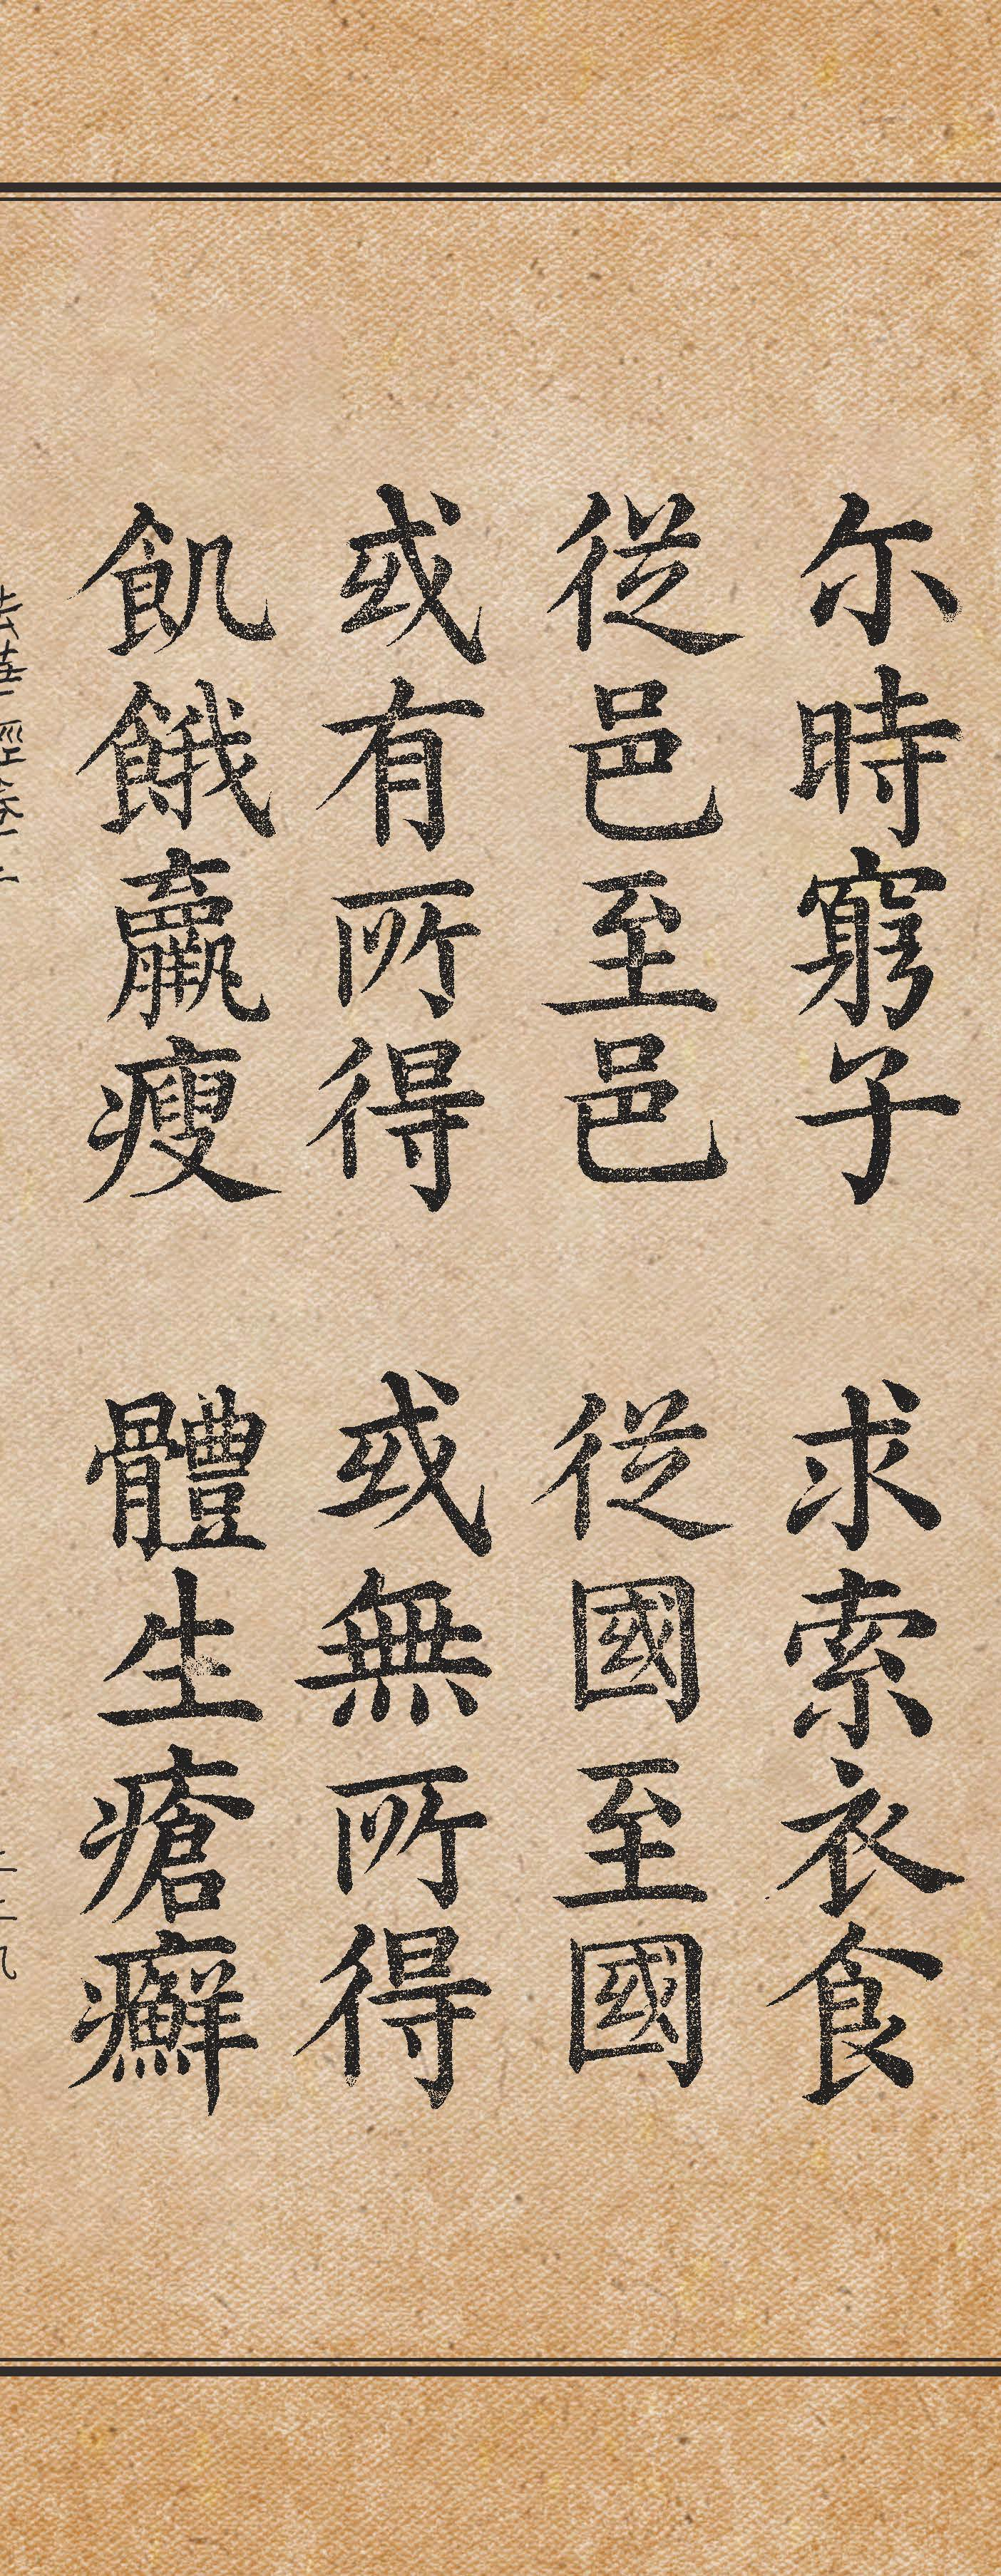 尔時窮子　求索衣食
從邑至邑　從國至國
或有所得　或無所得
飢餓羸瘦　體生瘡癬